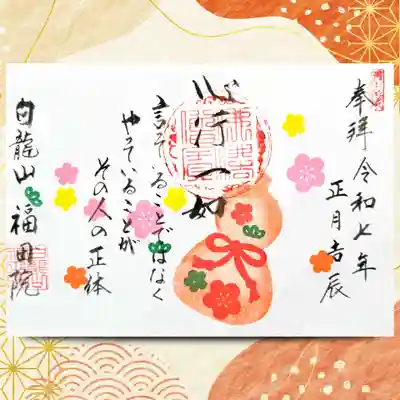 奉拝 令和七年
正月吉辰
心行一如
言ってることではなく
やっていることが
その人の正体
白龍山 福田院